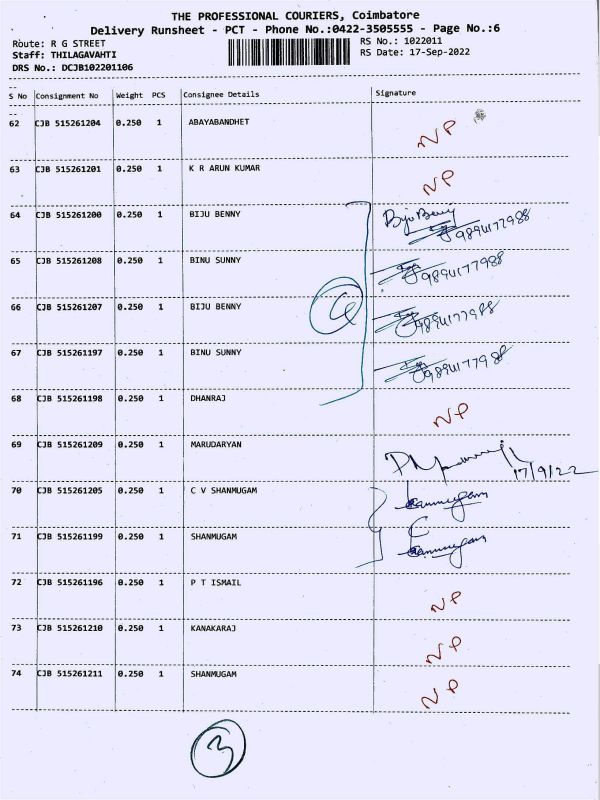 THE PROFESSIONAL COURIERS, Coimbatore
Delivery Runsheet - PCT - Phone No.:0422-3505555 - Page No.:6
Route: R G STREET RS No.: 1022011
Staff: THILAGAVAHTI RS Date: 17-Sep-2022
DRS No.: DCJB102201106
S No Consignment No Weight PCS Consignee Details Signature
62 CJB 515261204 0.250 1 ABAYABANDHET NP
63 CJB 515261201 0.250 1 K R ARUN KUMAR NP
64 CJB 515261200 0.250 1 BIJU BENNY Biju Benny
9894177988
65 CJB 515261208 0.250 1 BINU SUNNY 9894177988
66 CJB 515261207 0.250 1 BIJU BENNY 9894177988
67 CJB 515261197 0.250 1 BINU SUNNY 9894177988
68 CJB 515261198 0.250 1 DHANRAJ NP
69 CJB 515261209 0.250 1 MARUDARYAN 17/9/22
70 CJB 515261205 0.250 1 C V SHANMUGAM
71 CJB 515261199 0.250 1 SHANMUGAM
72 CJB 515261196 0.250 1 P T ISMAIL NP
73 CJB 515261210 0.250 1 KANAKARAJ NP
74 CJB 515261211 0.250 1 SHANMUGAM NP
3